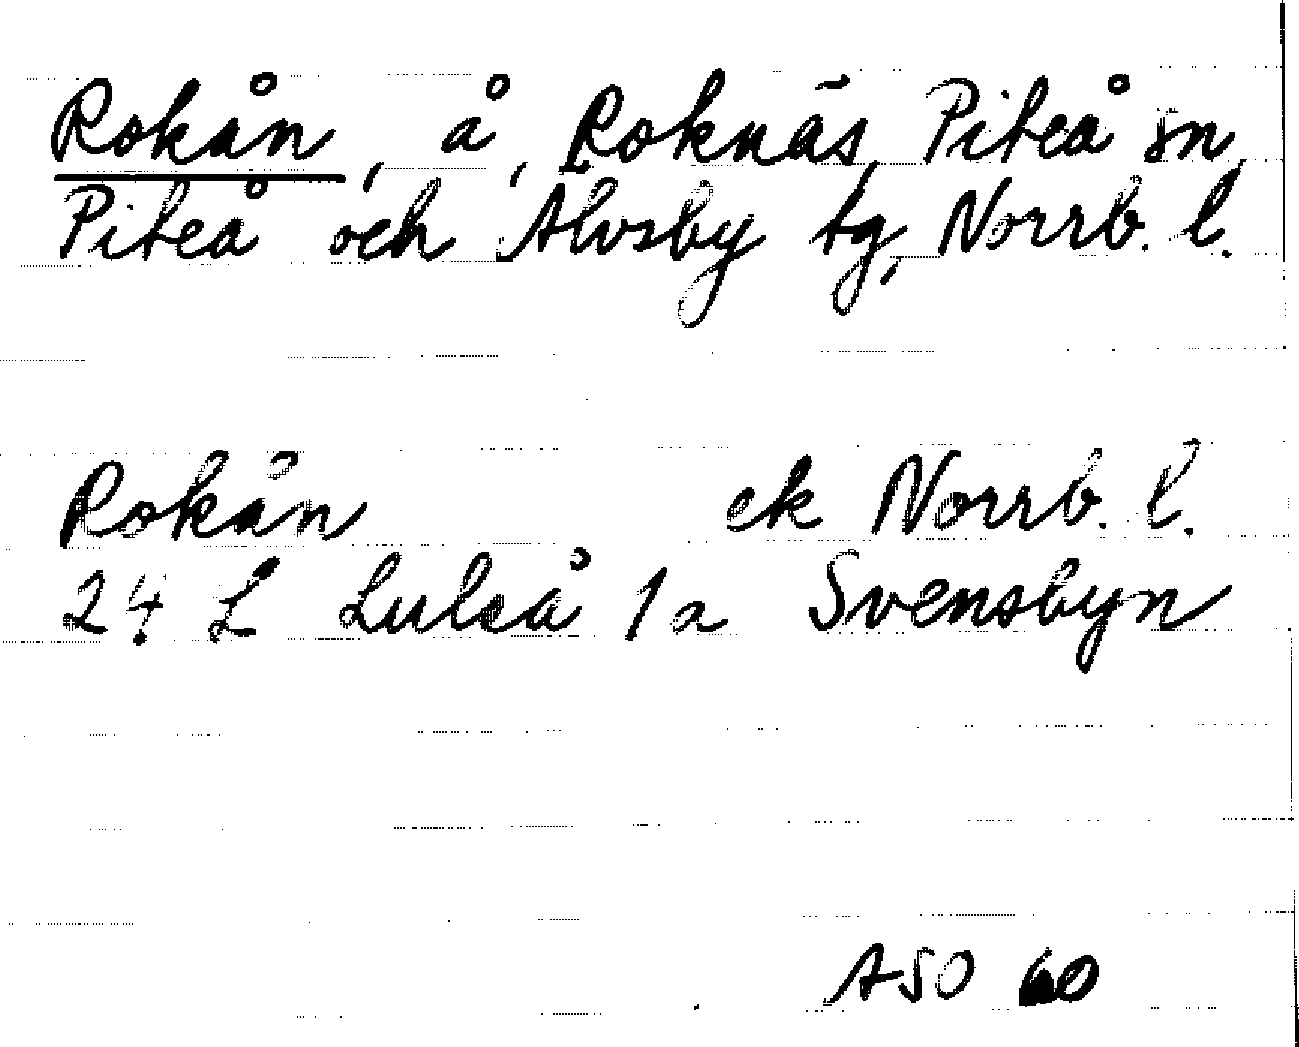 Rokån, å, Roknäs, Piteå sn,
Piteå och Älvsby tg, Norrb. l.
Rokån ek Norrb. l.
24 L Luleå 1a Svensbyn
ASO 60